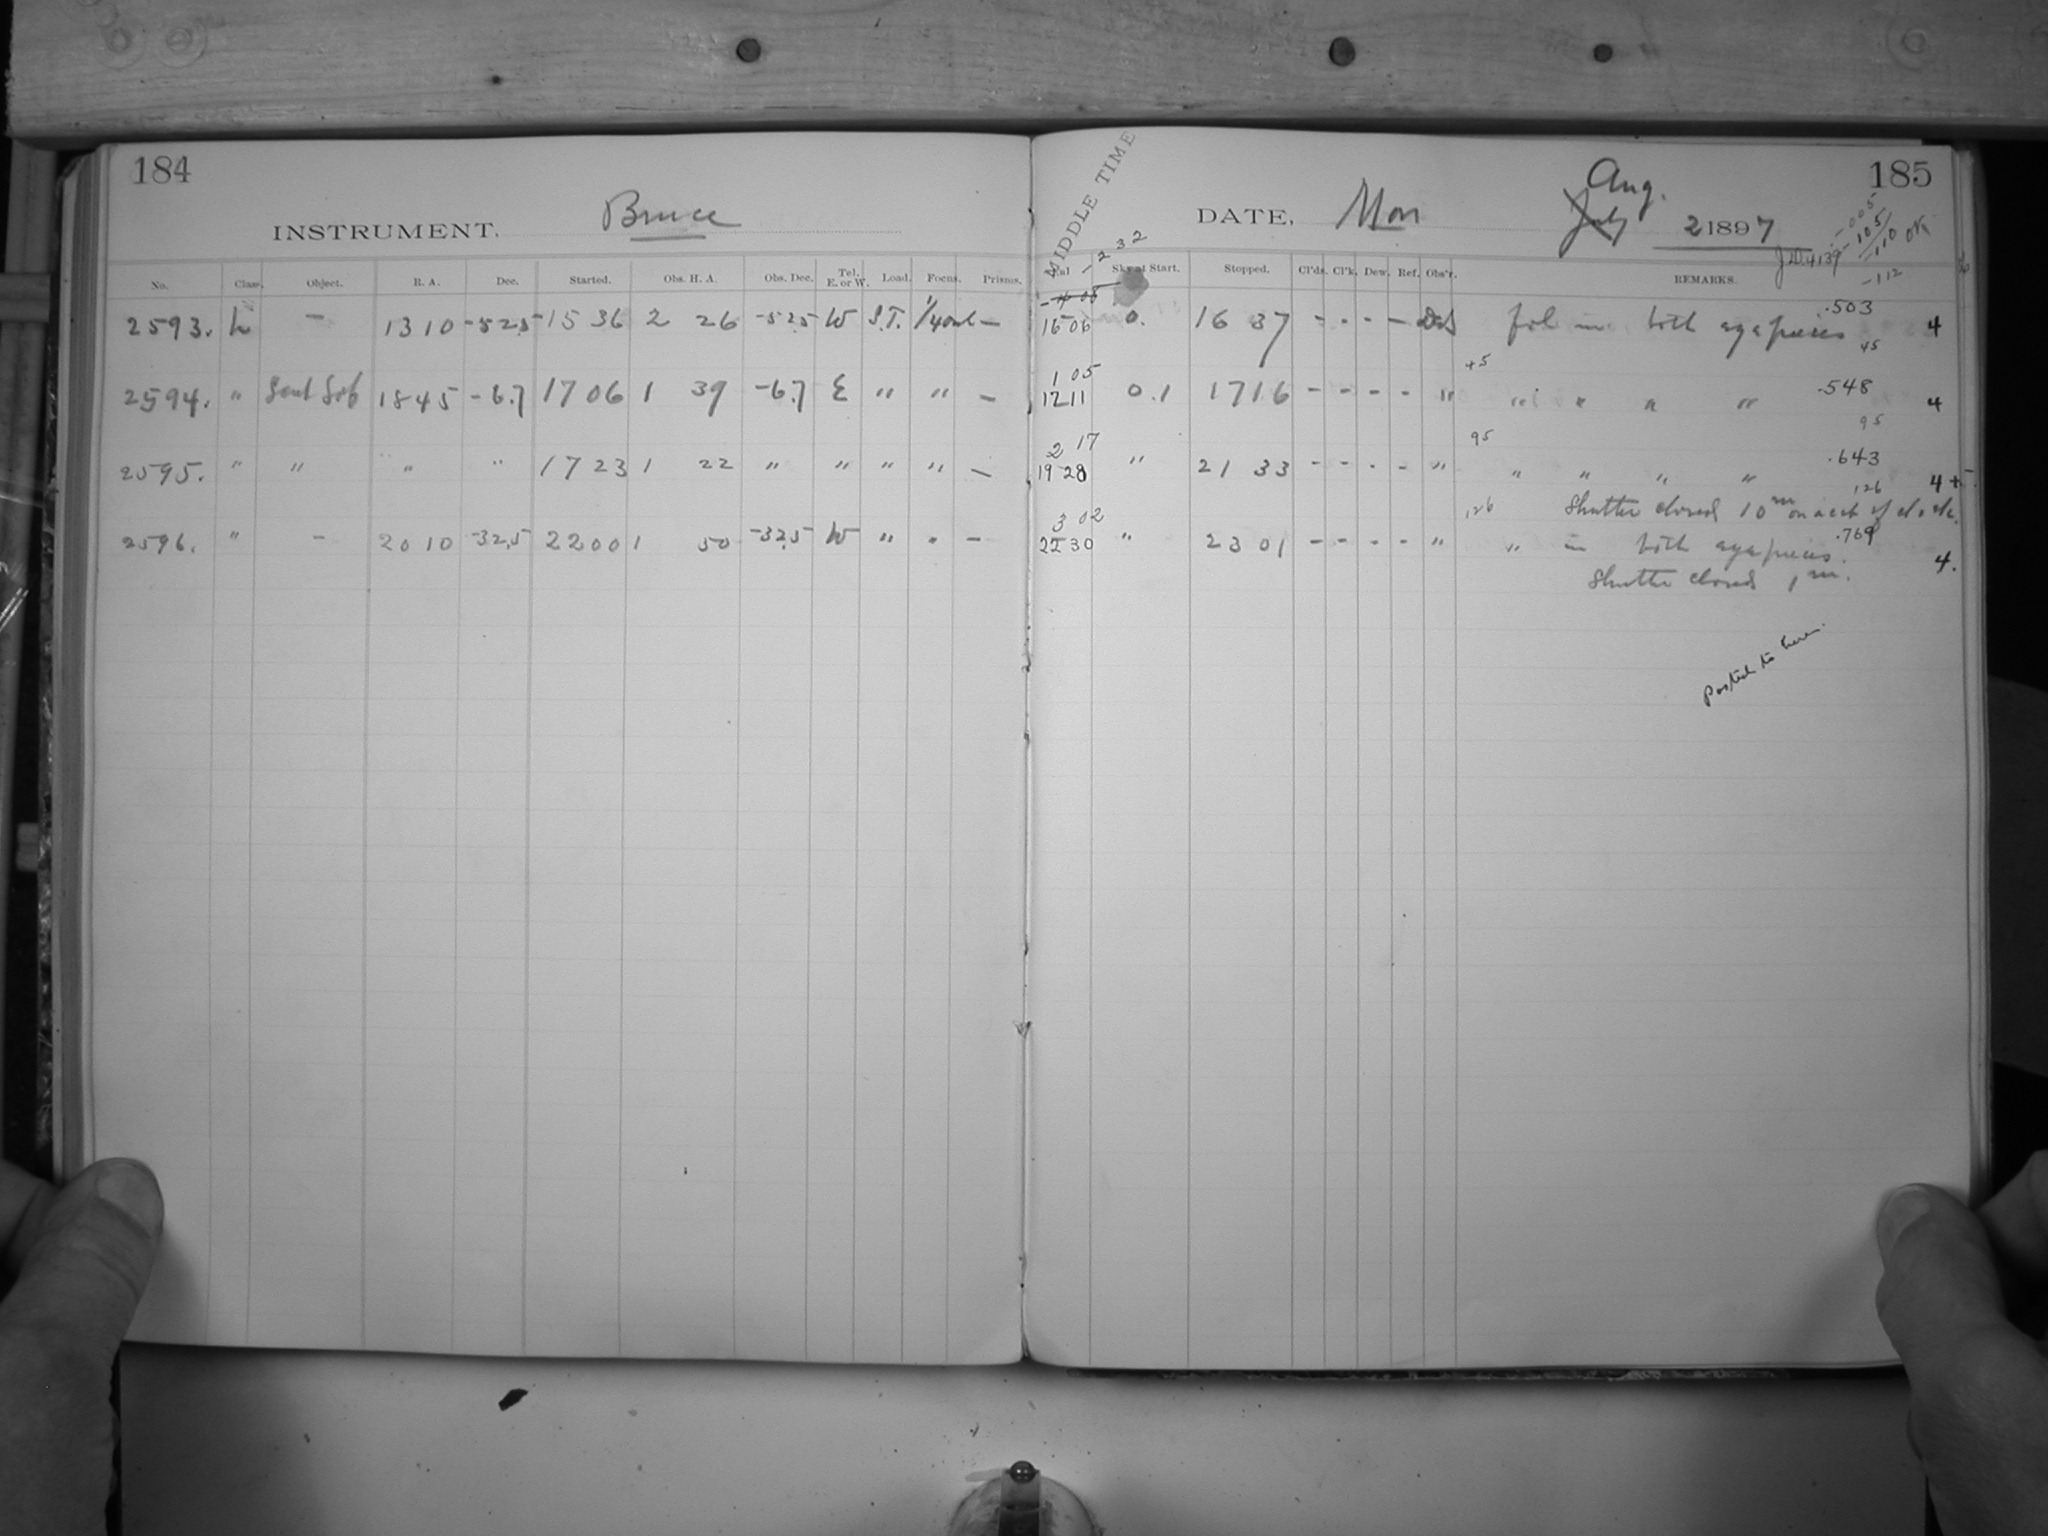 184
INSTRUMENT, Bruce
No. Class. Object. R. A. Dec. Started. Obs. H. A. Obs. Dec. Tel. E. or W. Load. Focus. Prisms.
2593. L — 13 10 -52.5 15 36 2 26 -52.5 W S.T. —
2594. " 18 45 -6.7 17 06 1 39 -6.7 E " " —
2595. " " " " 17 23 1 22 " " " " —
2596. " — 20 10 -32.5 22 00 1 50 -32.5 W " " —
185
MIDDLE TIME
DATE, Mon Aug. July 2 1897
J.D. 4139 -.005 -105 -110 OK -112
- 2 32
Sky at Start. Stopped. Cl'ds. Cl'k. Dew. Ref. Obs'r. REMARKS.
16 06 0. 16 37 - - - - foil in both eyepieces .503 4
45
1 05 +5
12 11 0.1 17 16 - - - - " " " " " .548 4
95
2 17 95
19 28 " 21 33 - - - - " " " " " .643 4+
126
Shutter closed 10m on acct of clock.
3 02 126
22 30 " 23 01 - - - - " " in both eyepieces. .769 4.
Shutter closed 1m.
Posted to here.